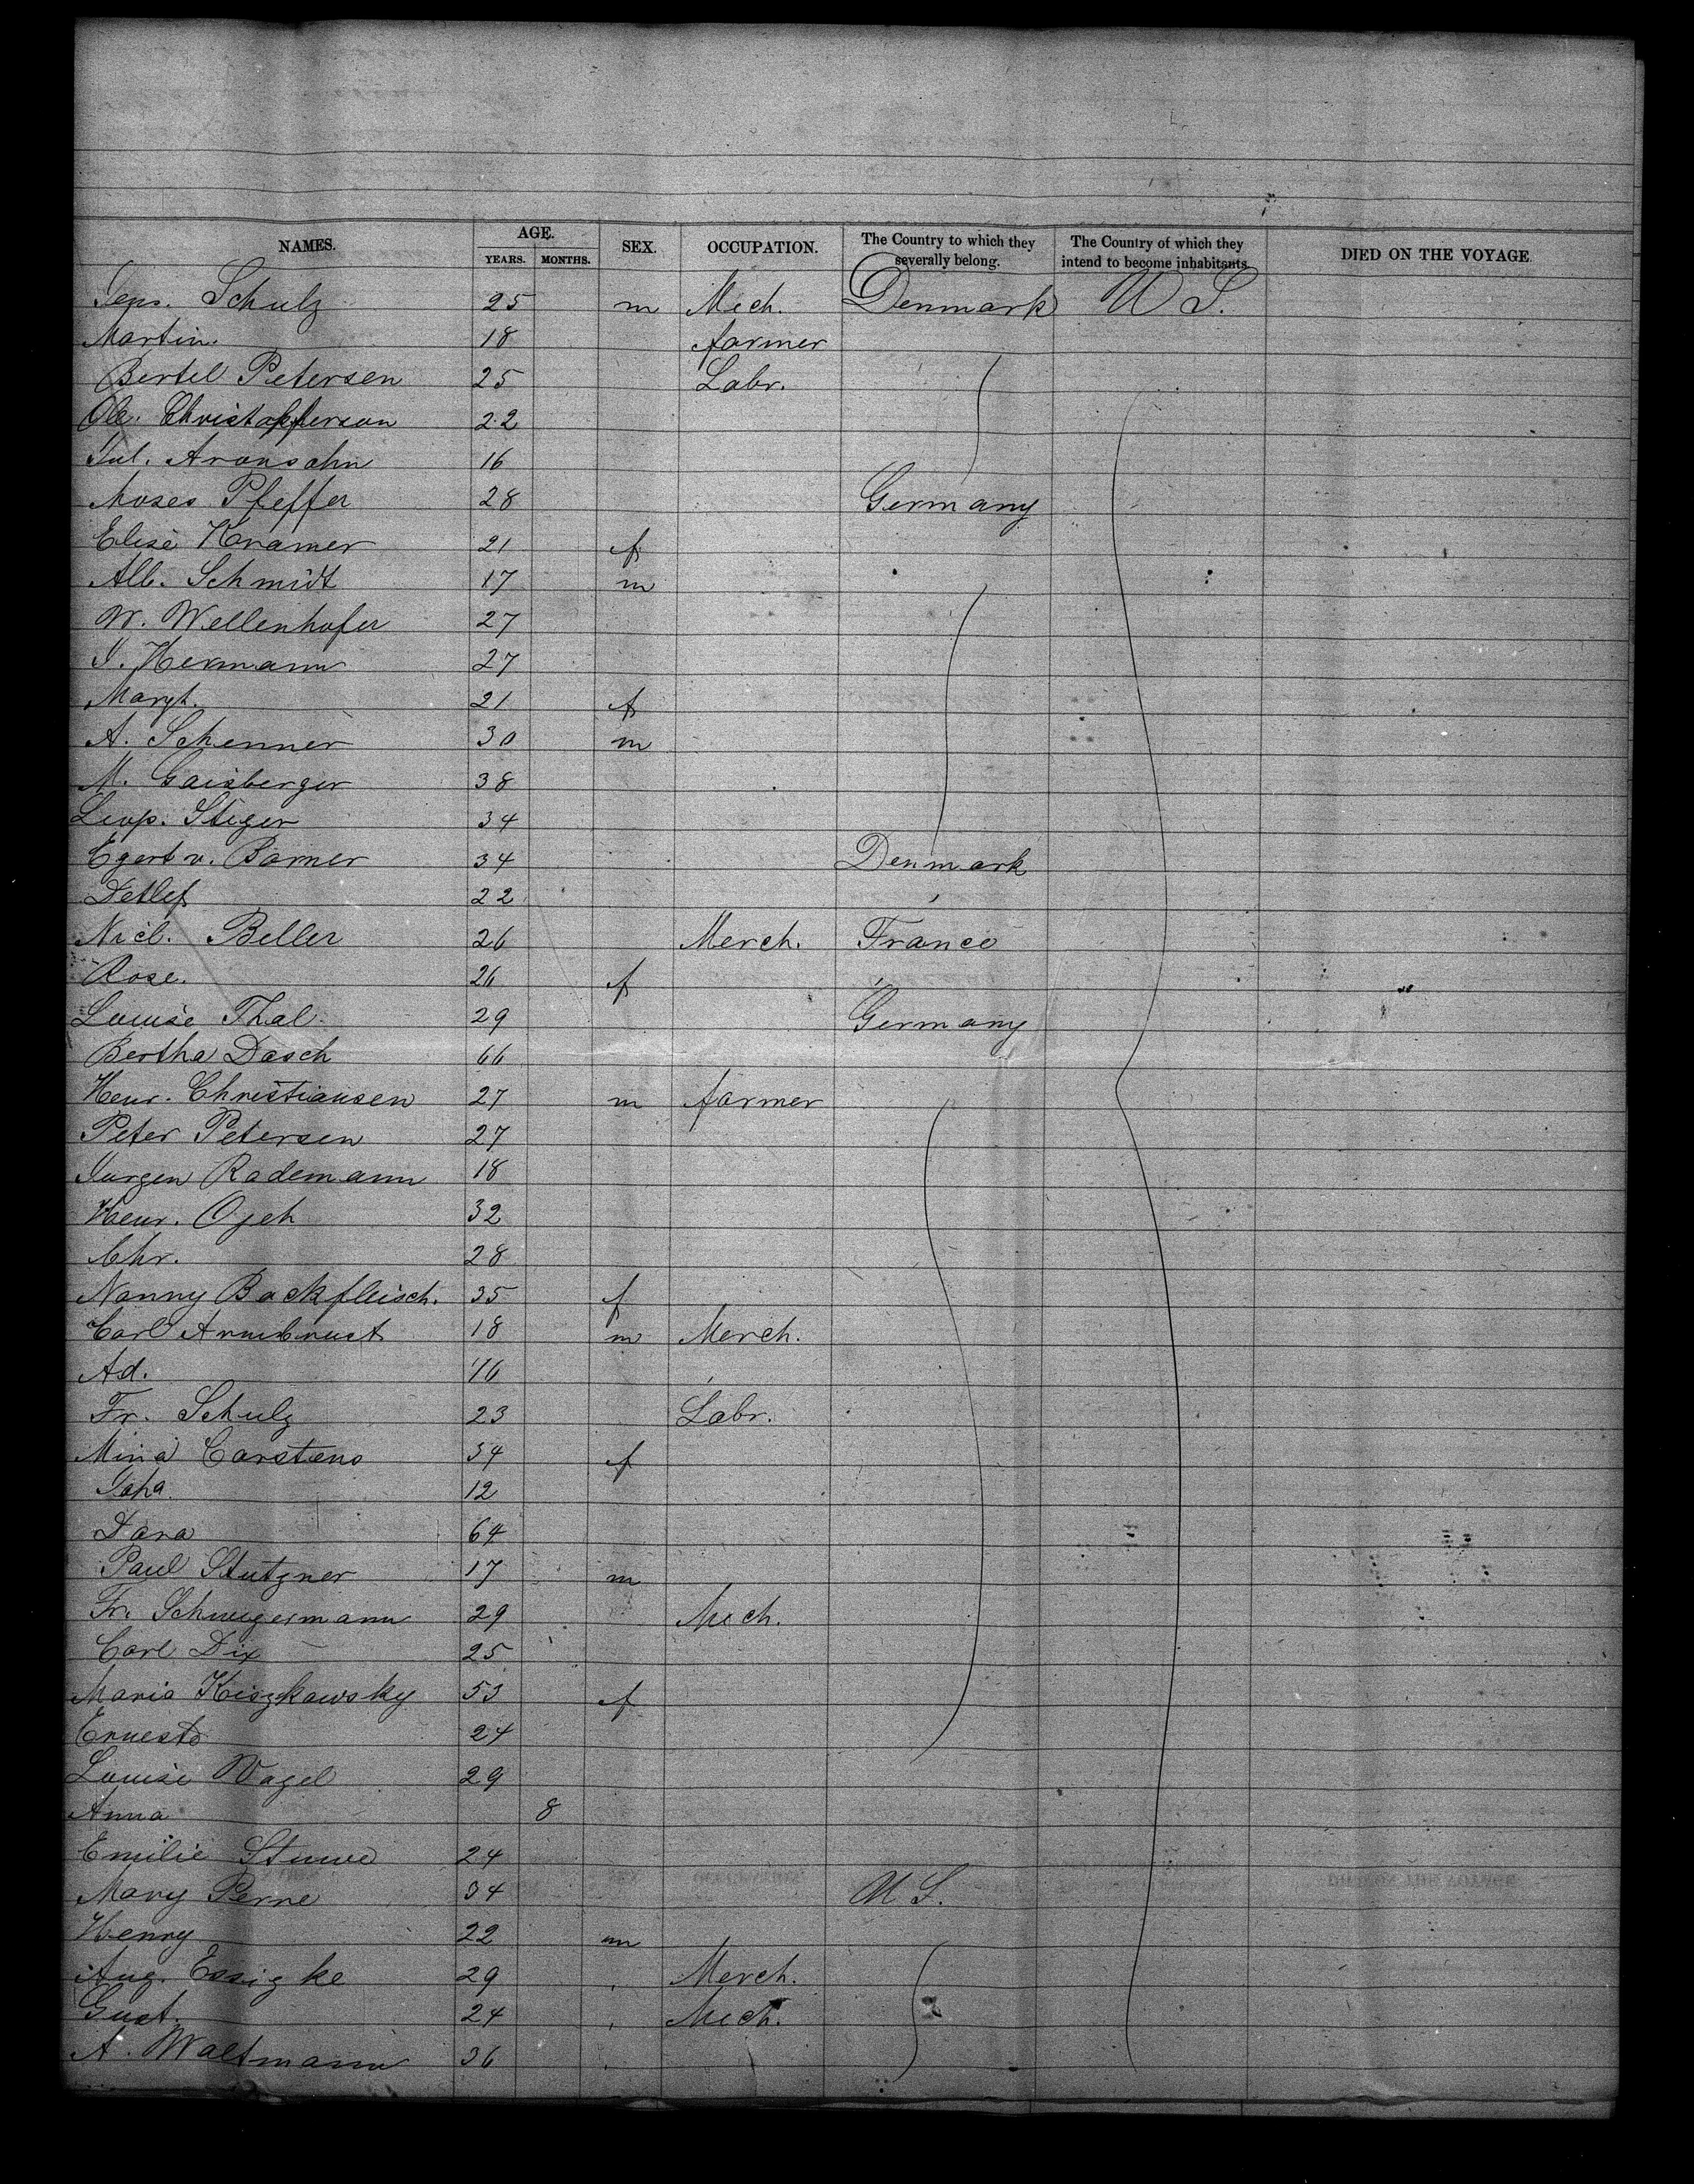 NAMES. AGE. SEX. OCCUPATION. The Country to which they severally belong. The Country of which they intend to become inhabitants. DIED ON THE VOYAGE
YEARS. MONTHS.
Jens. Schulz 25 m Mech. Denmark U S.
Martin. 18 farmer
Bertel Petersen 25 Labr.
Ole. Christofferson 22
Jul. Aronsohn 16
Moses Pfeffer 28 Germany
Elise Kramer 21 f
Alb. Schmidt 17 m
W. Wellenhofer 27
J. Hermann 27
Margt. 21 f
A. Schenner 30 m
M. Gaisberger 38
Leop. Stiger 34
Egert v. Barner 34 Denmark
Detlef 22
Nicl. Beller 26 Merch. France
Rose. 26 f
Louise Thal. 29 Germany
Bertha Dasch 66
Henr. Christiansen 27 m farmer
Peter Petersen 27
Jurgen Rademann 18
Henr. 32
Chr. 28
Nanny Backfleisch. 35 f
Carl Armbrust 18 m Merch.
Ad. 16
Fr. Schulz 23 Labr.
Mina Carstens 34 f
Joha. 12
Dora 64
Paul Stutzner 17 m
Fr. Schwegermann 29 Mech.
Carl Dix 25
Maria Kiszkowsky 53 f
Ernest 24
Louise Vagel 29
Anna 8
Emilie Stuwe 24
Mary Perne 34 U S.
Henry 22 m
Aug. Essigke 29 Merch.
Gust. 24 Mech.
A. Waltmann 36